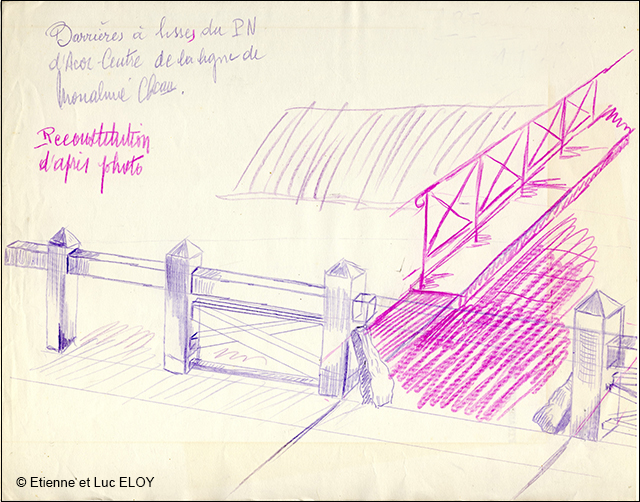 Barrières à lisses du PN
d'Acoz-Centre de la ligne de
Reconstitution
d'après photo
© Etienne et Luc ELOY